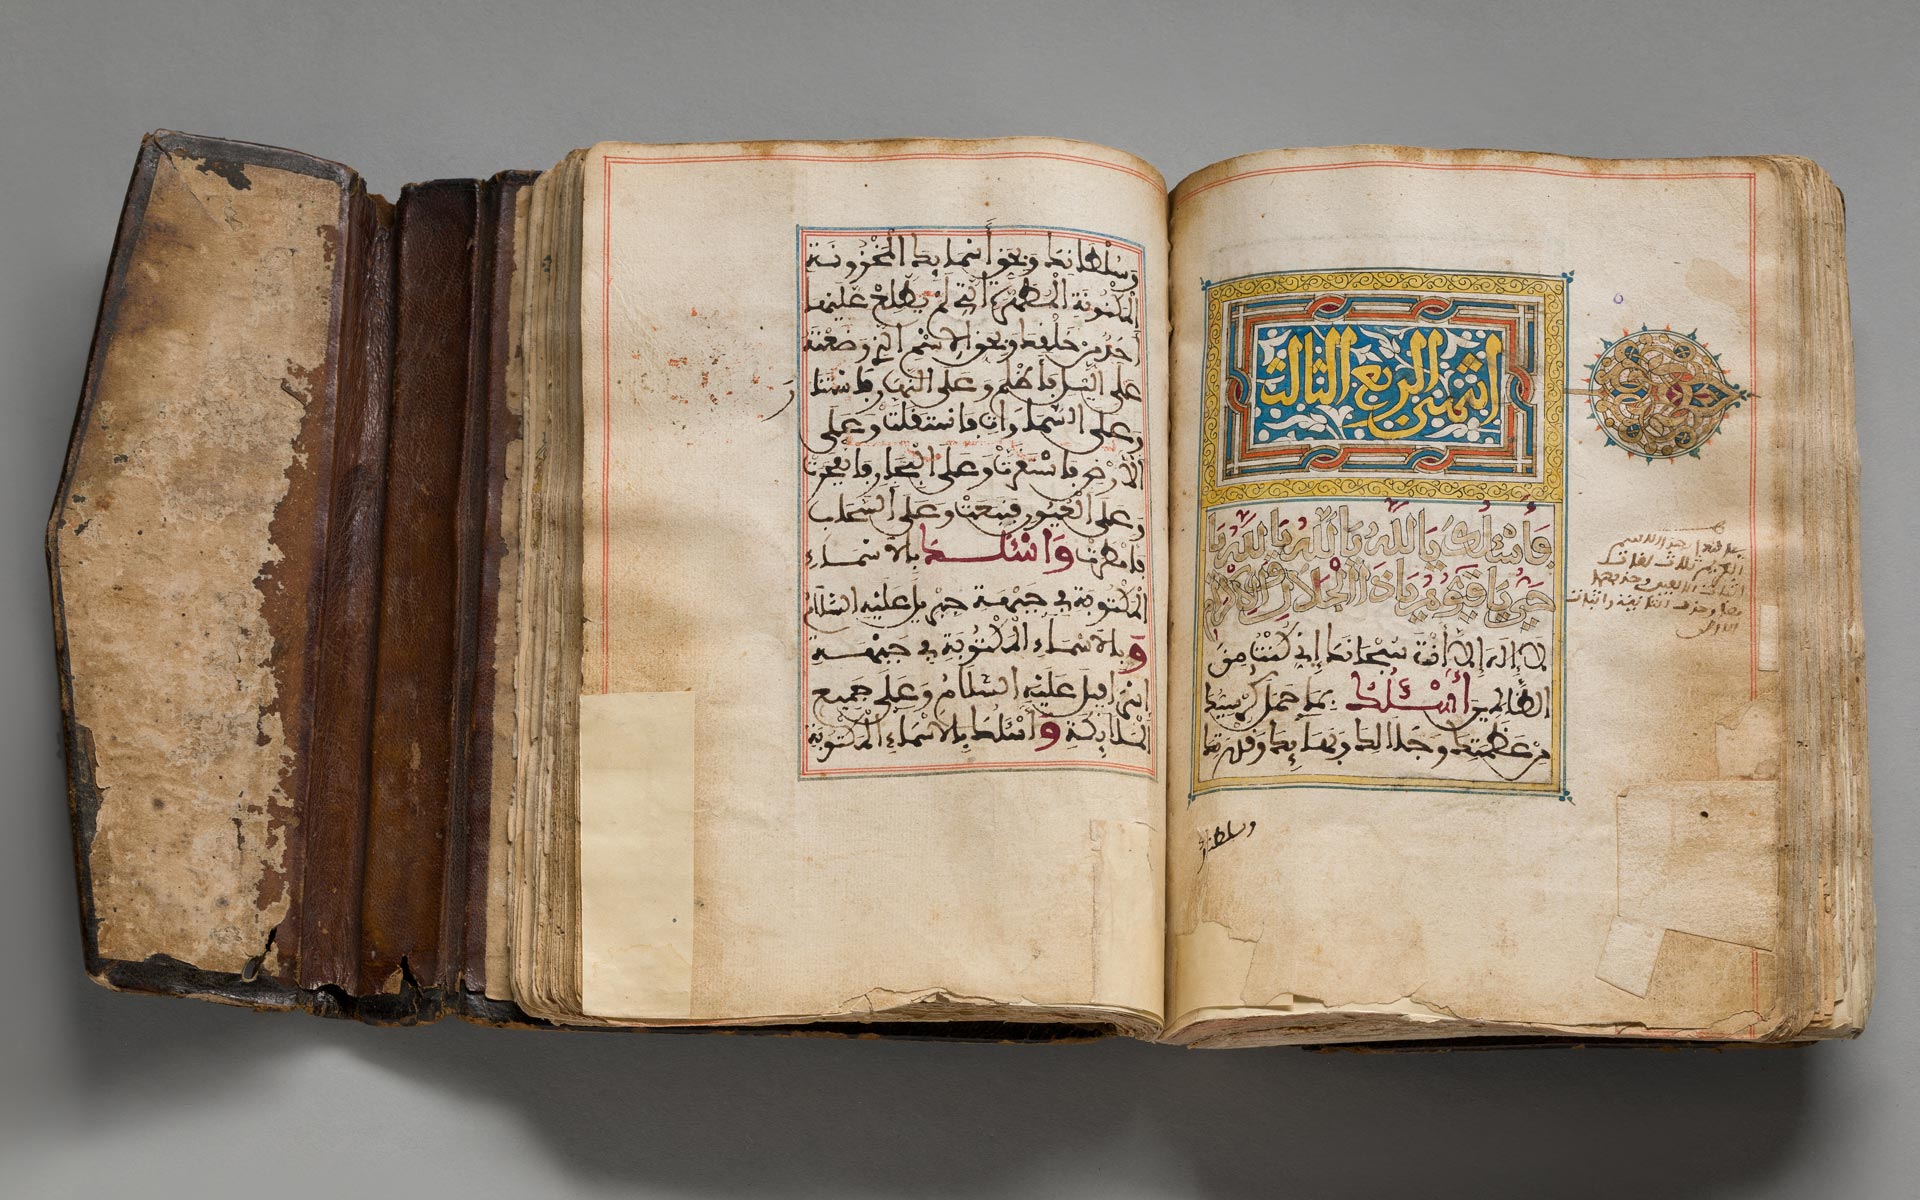 اثمن الربع الثالث
فأسئلك يا الله يا الله يا الله يا
حي يا قيوم يا ذا الجلال والإكرام
لا إله إلا أنت سبحانك إني كنت من
الظالمين أسئلك بما حمل كرسيك
من عظمتك وجلالك وبهائك وقدرتك
وسلطانك
وسلطانك وبحق أسمائك المخزونة
المكنونة المطهرة التي لم يطلع عليها
أحد من خلقك وبحق الاسم الذي وضعته
على الليل فأظلم وعلى النهار فاستنار
وعلى السماوات فاستقلت وعلى
الأرض فاستقرت وعلى البحار فانفجرت
وعلى العيون فنبعت وعلى السحاب
فأمطرت وأسئلك بالأسماء
المكتوبة في جبهة جبريل عليه السلام
وبالأسماء المكتوبة في جبهة
إسرافيل عليه السلام وعلى جميع
الملائكة وأسئلك بالأسماء المكتوبة